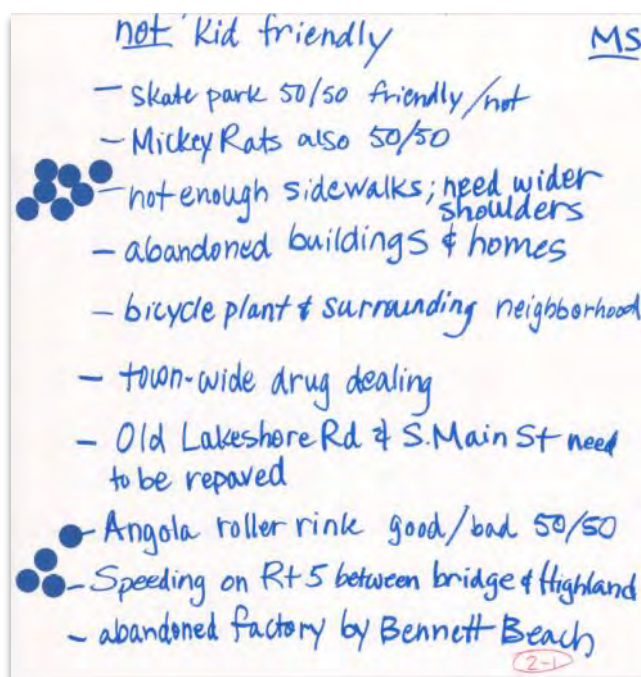 not kid friendly
MS
- skate park 50/50 friendly/not
- Mickey Rats also 50/50
- not enough sidewalks; need wider
shoulders
- abandoned buildings & homes
- bicycle plant & surrounding neighborhood
- town-wide drug dealing
- Old Lakeshore Rd & S. Main St need
to be repaved
- Angola roller rink good/bad 50/50
- Speeding on Rt 5 between bridge & Highland
- abandoned factory by Bennett Beach
2-1